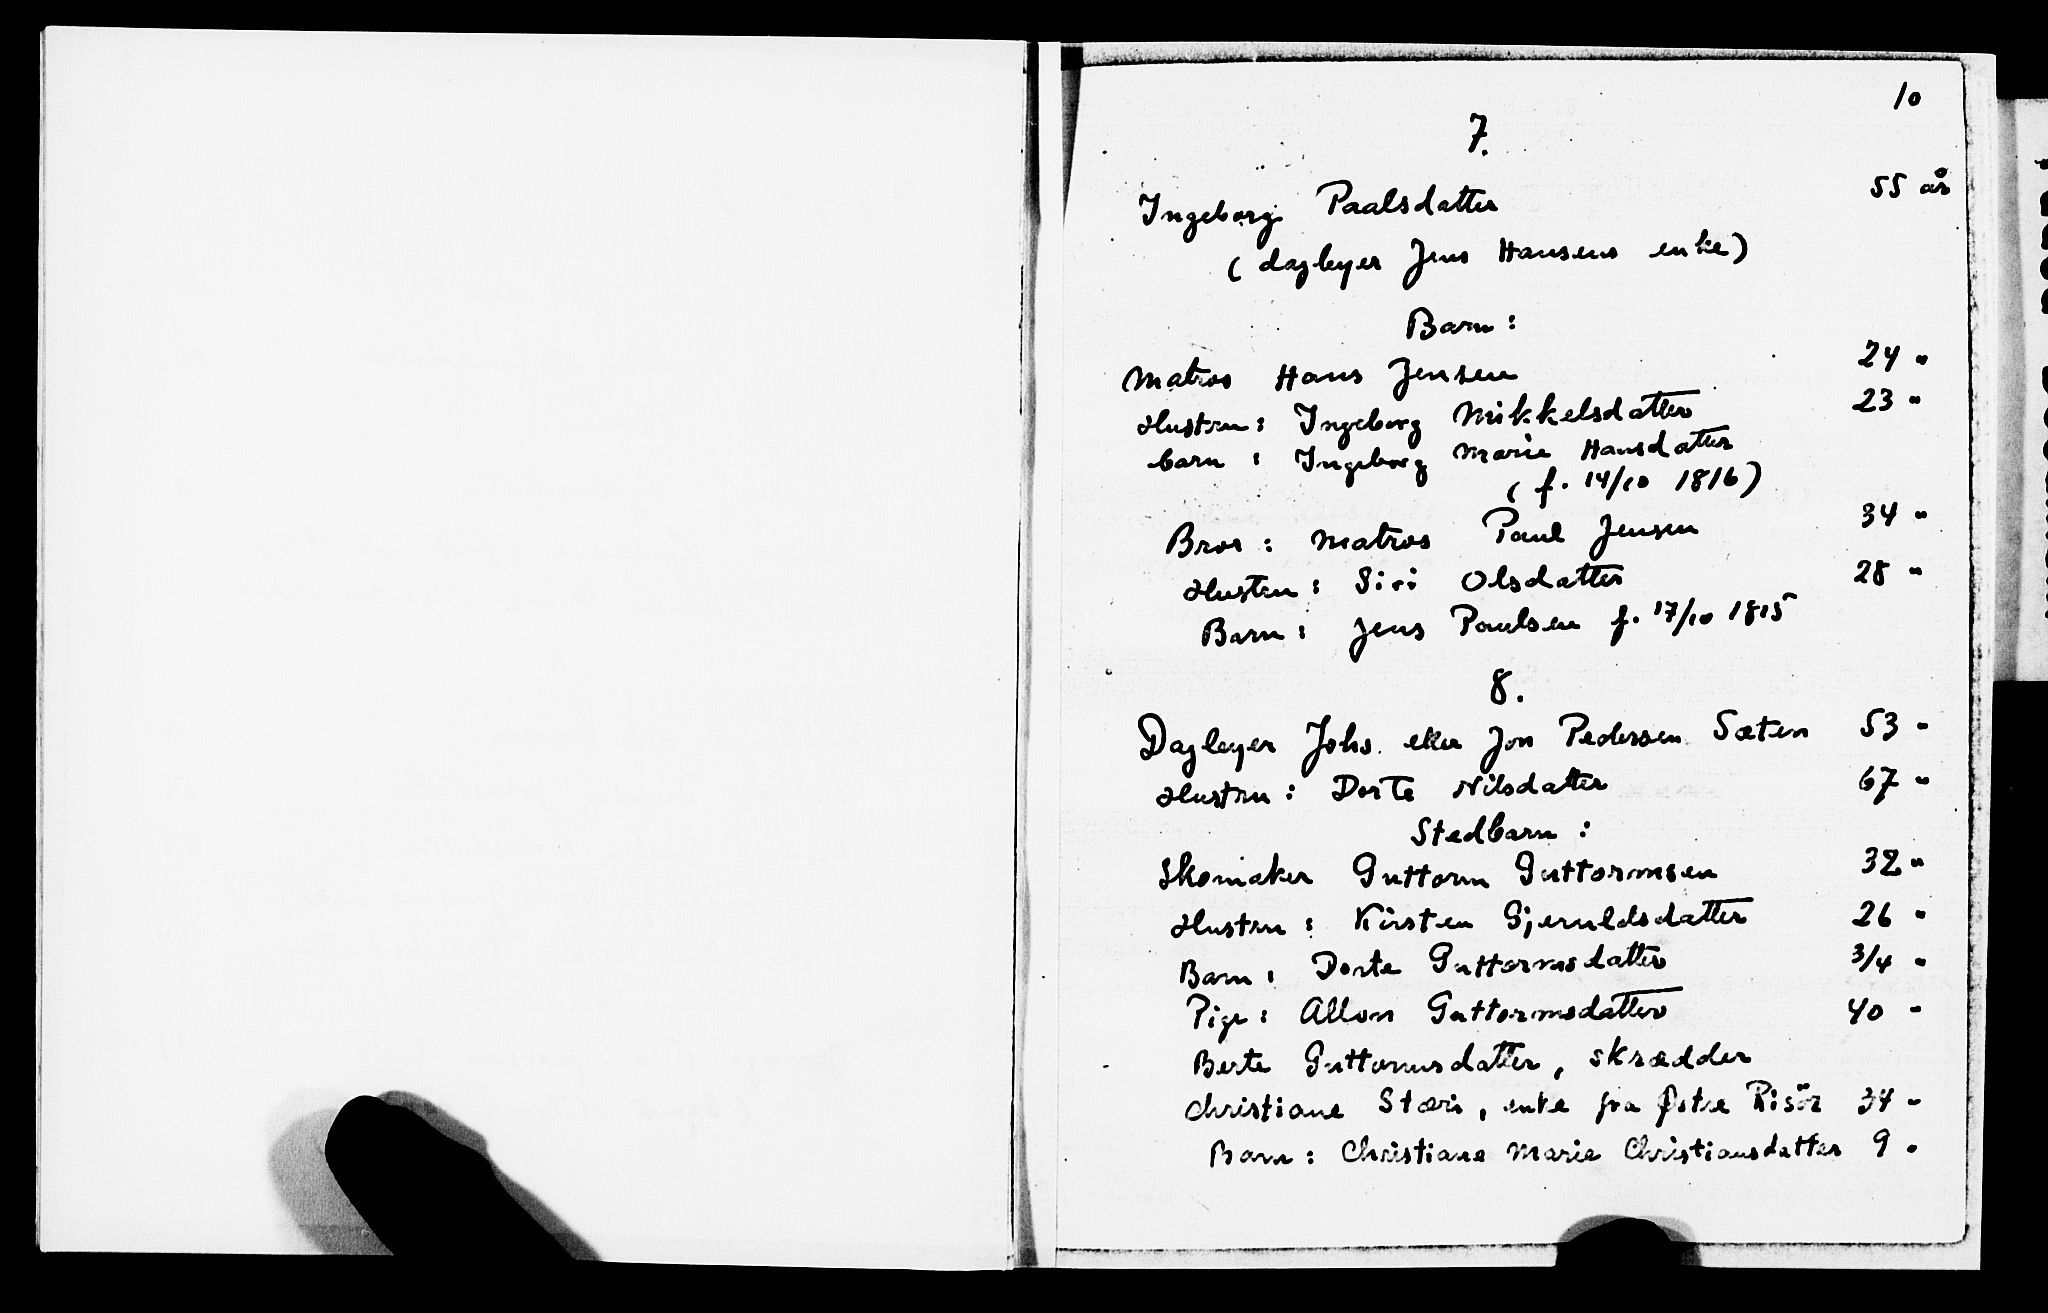 10
7.
Ingeborg Paalsdatter 55 år
(dagleyer Jens Hansens enke)
Barn:
Matros Hans Jensen 24 "
Hustru: Ingeborg Mikkelsdatter 23 "
barn: Ingeborg Marie Hansdatter
(f. 14/10 1816)
Bror: Matros Paul Jensen 34 "
Hustru: Siri Olsdatter 28 "
Barn: Jens Paulsen f. 17/10 1815
8.
Dagleyer Johs. eller Jon Pedersen Sæter 53 "
Hustru: Dorte Nilsdatter 67 "
Stedbarn:
Skomaker Guttorm Guttormsen 32 "
Hustru: Kirsten Gjeruldsdatter 26 "
Barn: Dorte Guttormsdatter 3/4 "
Pige: Allon Guttormsdatter 40 "
Berte Guttormsdatter, skrædder
Christiane Stærk, enke fra Østre Risör 34 "
Barn: Christiane Marie Christiansdatter 9 "